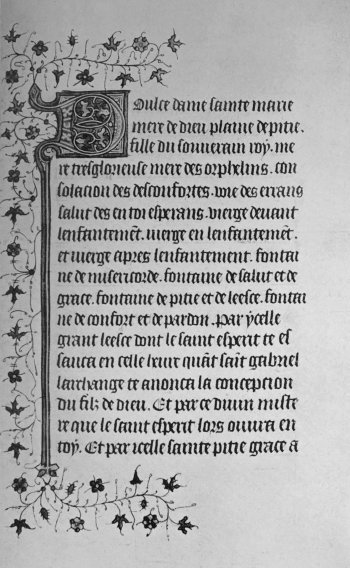 Doulce dame sainte marie
mere de dieu plaine de pitie.
fille du souverain roy. me
re tresglorieuse mere des orphelins. con
solation des desconfortes. voie des errans
salut des en toi esperans. vierge devant
lenfantemēt. vierge en lenfantemēt.
et vierge apres lenfantement. fontai
ne de misericorde. fontaine de salut et de
grace. fontaine de pitie et de leesce. fontai
ne de confort et de pardon. par ycelle
grant leesce dont le saint esperit te es
sauca en celle heure quāt saīt gabriel
larchange te anonca la conception
du filz de dieu. Et par ce divin miste
re que le saint esperit lors ouvra en
toy. Et par icelle sainte pitie grace a